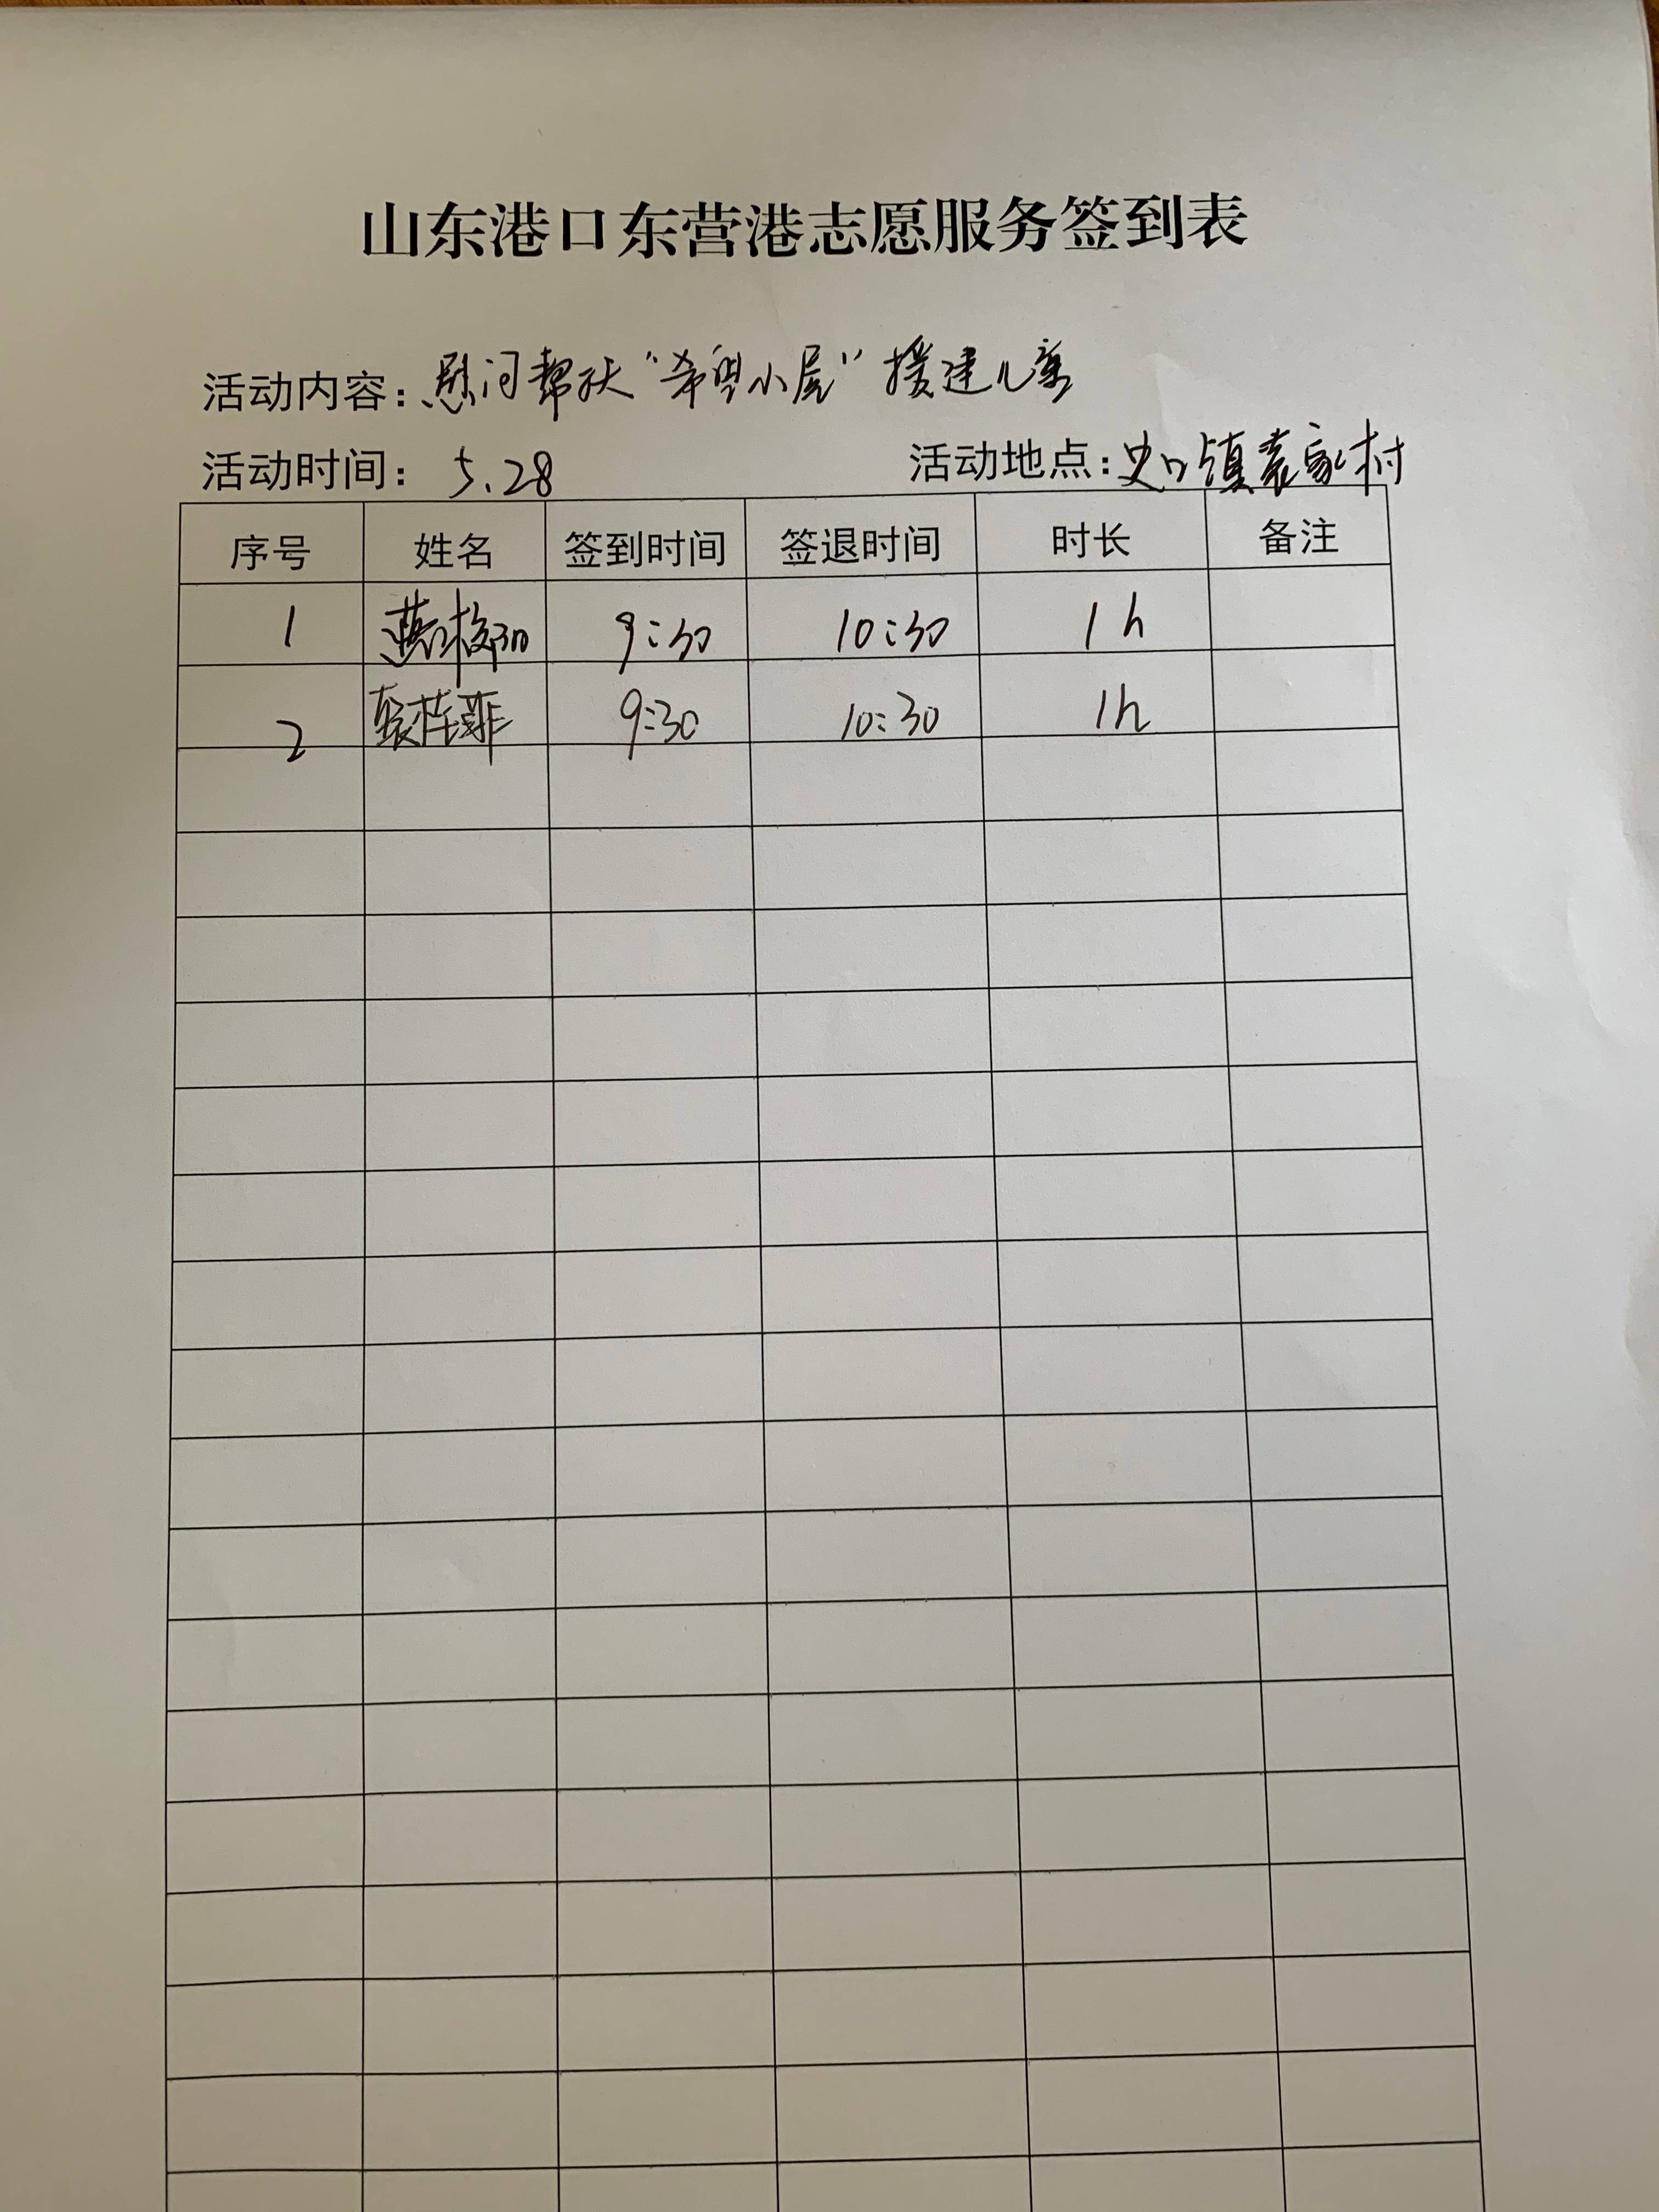 山东港口东营港志愿服务签到表
活动内容：慰问帮扶“希望小屋”援建儿童
活动时间：5.28 活动地点：史口镇袁家村
序号 姓名 签到时间 签退时间 时长 备注
1 9:30 10:30 1h
2 9:30 10:30 1h